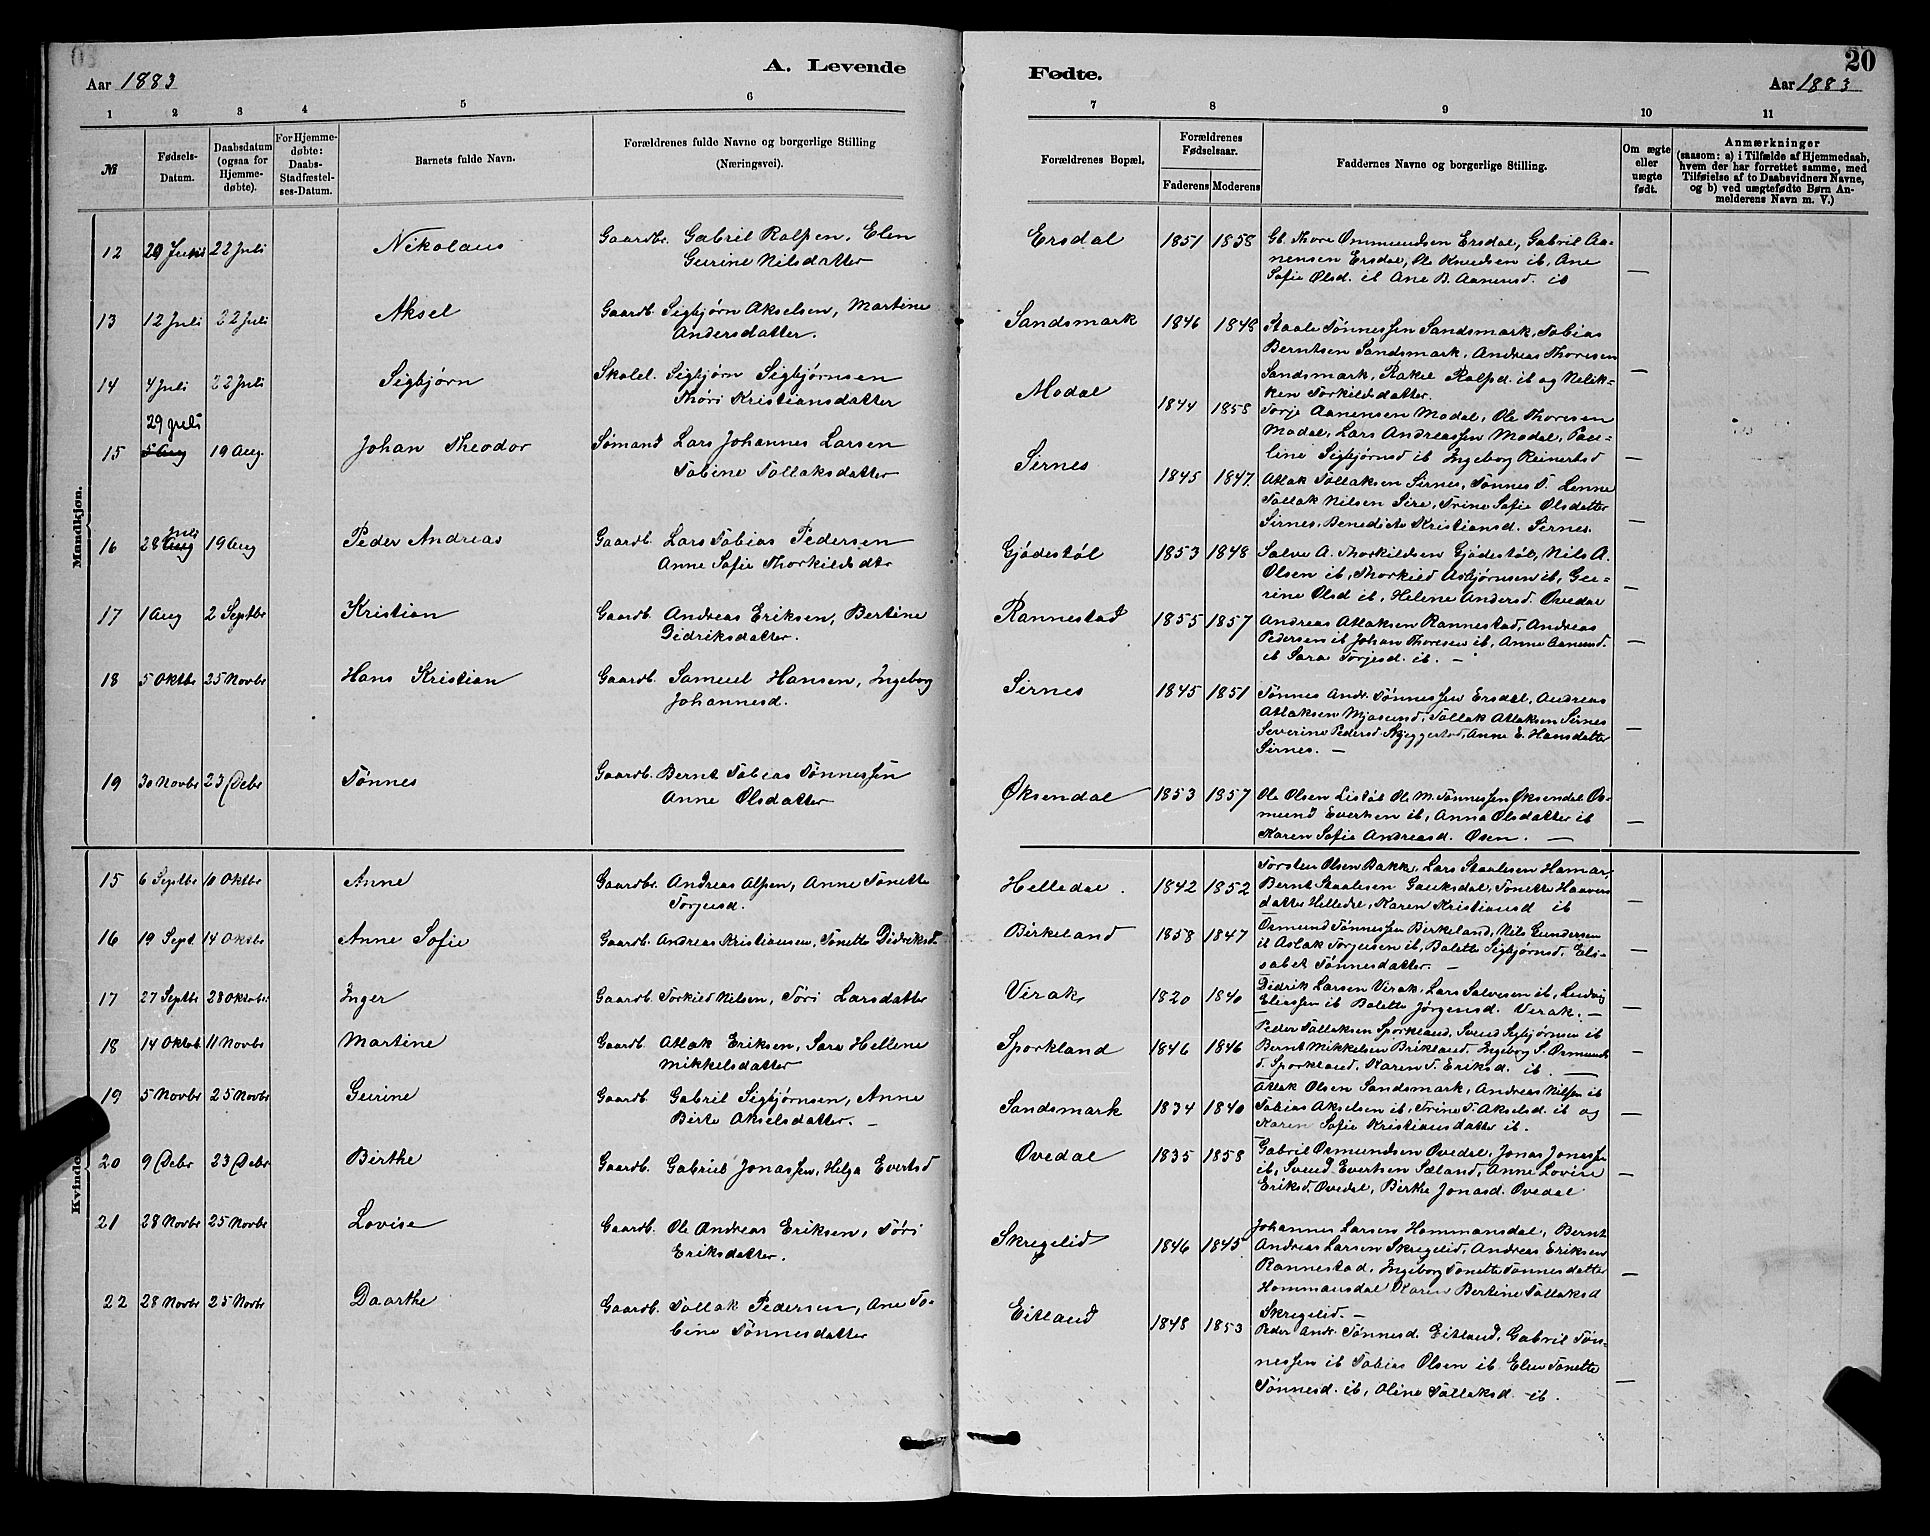 A. Levende Fødte.
20
Aar 1883
Aar 1883
1 2 3 4 5 6 7 8 9 10 11
№
Fødsels-Datum.
Daabsdatum (ogsaa for Hjemme-døbte).
For Hjemme-døbte: Daabs-Stadfæstel-ses-Datum.
Barnets fulde Navn.
Forældrenes fulde Navne og borgerlige Stilling (Næringsvei).
Forældrenes Bopæl.
Forældrenes Fødselsaar.
Faderens Moderens
Faddernes Navne og borgerlige Stilling.
Om ægte eller uægte født.
Anmærkninger
(saasom: a) i Tilfælde af Hjemmedaab, hvem der har forrettet samme, med Tilføielse af to Daabsvidners Navne, og b) ved uægtefødte Børn An-melderens Navn m. V.)
Mandkjøn.
12 29 Juni 22 Juli Nikolaus Gaardbr. Gabril Ralfsen, Elen
Geirine Nilsdatter
Ersdal 1851 1858 Gb. Thore Ommundsen Ersdal, Gabril Aa-
nensen Ersdal, Ole Knudsen ib, Ane
Sofie Olsd. ib Ane B. Aanensd. ib —
13 12 Juli 22 Juli Aksel Gaardb. Sigbjørn Akselsen, Martine
Andersdatter.
Sandsmark 1846 1848 Staale Tønnessen Sandsmark, Tobias
Berntsen Sandsmark, Andreas Thoresen
Sandsmark, Rakel Ralfsd. ib og Nilik-
ken Torkildsdatter. —
14 4 Juli 22 Juli Sigbjørn Skolel. Sigbjørn Sigbjørnsen
Thöri Kristiansdatter
Modal 1844 1858 Torje Aanensen Modal, Ole Thoresen
Modal, Lars Andreassen Modal, Pau-
line Sigbjørnsd ib Ingeborg Reinertsd —
15 29 Juli 5 Aug 19 Aug. Johan Theodor Sømand Lars Johannes Larsen
Tobine Tollaksdatter
Sirnes 1845 1847 Atlak Tollaksen Sirnes, Tønnes T. Lenne
Tollak Nilsen Sire, Trine Sofie Olsdatter
Sirnes, Benedicte Kristiansd. Sirnes. —
16 28 Aug Juli 19 Aug Peder Andreas Gaardb. Lars Tobias Pedersen
Anne Sofie Thorkildsdtr
Gjödestöl 1853 1848 Salve A. Thorkildsen Gjödestöl, Nils A.
Olsen ib, Thorkild Asbjørnsen ib, Gei-
rine Olsd ib, Helene Andersd. Ovedal —
17 1 Aug 2 Septbr Kristian Gaardb. Andreas Eriksen, Bertine
Didriksdatter.
Rannestad 1855 1857 Andreas Atlaksen Rannestad, Andreas
Pedersen ib Johan Thoresen ib, Anne Aanensd.
ib Sara Torjesd. ib. — —
18 5 Oktbr 25 Novbr Hans Kristian Gaardb. Samuel Hansen, Ingeborg
Johannesd.
Sirnes 1845 1851 Tønnes Andr. Tønnessen Ersdal, Andreas
Atlaksen Mjasund, Tollak Atlaksen Sirnes
Severine Pedersd Skjeggestad, Anne E. Hansdatter
Sirnes. — —
19 30 Novbr 23 Debr Tønnes Gaardb. Bernt Tobias Tønnessen
Anne Olsdatter
Øksendal 1853 1857 Ole Olsen Listöl Ole M. Tønnessen Øksendal Os-
mund Evertsen ib, Anna Olsdatter ib
Karen Sofie Andreasd. Osen. — —
Kvinde
15 6 Septbr 10 Oktbr Anne Gaardbr. Andreas Alfsen, Anne Tonette
Torjeisd.
Helledal. 1842 1852 Torsten Olsen Bakke, Lars Staalesen Hamar,
Bernt Staalesen Gauksdal, Tonette Haavens
datter Helledal, Karen Kristiansd ib —
16 19 Sept. 14 Oktbr Anne Sofie Gaardb. Andreas Kristiansen, Tonette Didriksd.
Birkeland 1858 1847 Osmund Tønnessen Birkeland, Nils Gundersen
ib Aslak Torjeisen ib, Bolette Sigbjørnsd, Eli-
sabet Tønnesdatter. — —
17 27 Septbr 28 Oktobr Inger Gaardb. Torkild Nilsen, Töri Larsdatter
Virak 1820 1840 Didrik Larsen Virak, Lars Salvesen ib, Ludvig
Eliassen ib Bolette Jörgensd. Virak. — —
18 14 Oktob. 11 Novbr Martine Gaardb. Atlak Eriksen, Sara Hellene
Mikkelsdatter
Sporkland 1846 1846 Peder Tollaksen Sporkland, Svend Sigbjörnsen ib
Bernt Mikkelsen Brikland, Ingeborg S. Osmunds
d. Sporkland, Karen T. Eriksd. ib. — —
19 5 Novbr 25 Novbr Geirine Gaardb. Gabril Sigbjörnsen, Anne
Birte Akselsdatter. —
Sandsmark 1834 1840 Atlak Olsen Sandsmark, Andreas Nilsen ib
Tobias Akselsen ib, Trine T. Akselsd. ib og
Karen Sofie Kristiansdatter ib. —
20 9 Debr 23 Debr Birthe Gaardb. Gabriel Jonassen, Helga Evertsd
Ovedal 1835 1858 Gabriel Osmundsen Ovedal, Jonas Jonassen
ib, Svend Evertsen Sæland, Anne Lovise
Eriksd. Ovedal, Birthe Jonasd. Ovedal —
21 28 Novbr 25 Novbr Lovise Gaardb. Ole Andreas Eriksen, Töri
Eriksdatter.
Skregelid 1846 1845 Johannes Larsen Hommansdal, Bernt
Andreas Larsen Skregelid, Andreas Eriksen
Rannestad, Ingeborg Tonette Tønnesdatter
Hommansdal Karen Bertine Tollaksd
Skregelid. — —
22 28 Novbr 25 Novbr Daarthe Gaardb. Tollak Pedersen, Ane To-
bine Tønnesdatter
Eitland 1848 1853 Peder Andr. Tønnesd. Eitland, Gabril Tøn-
nessen ib Tobias Olsen ib Elen Tonette
Tønnesd. ib, Oline Tollaksd. ib. —